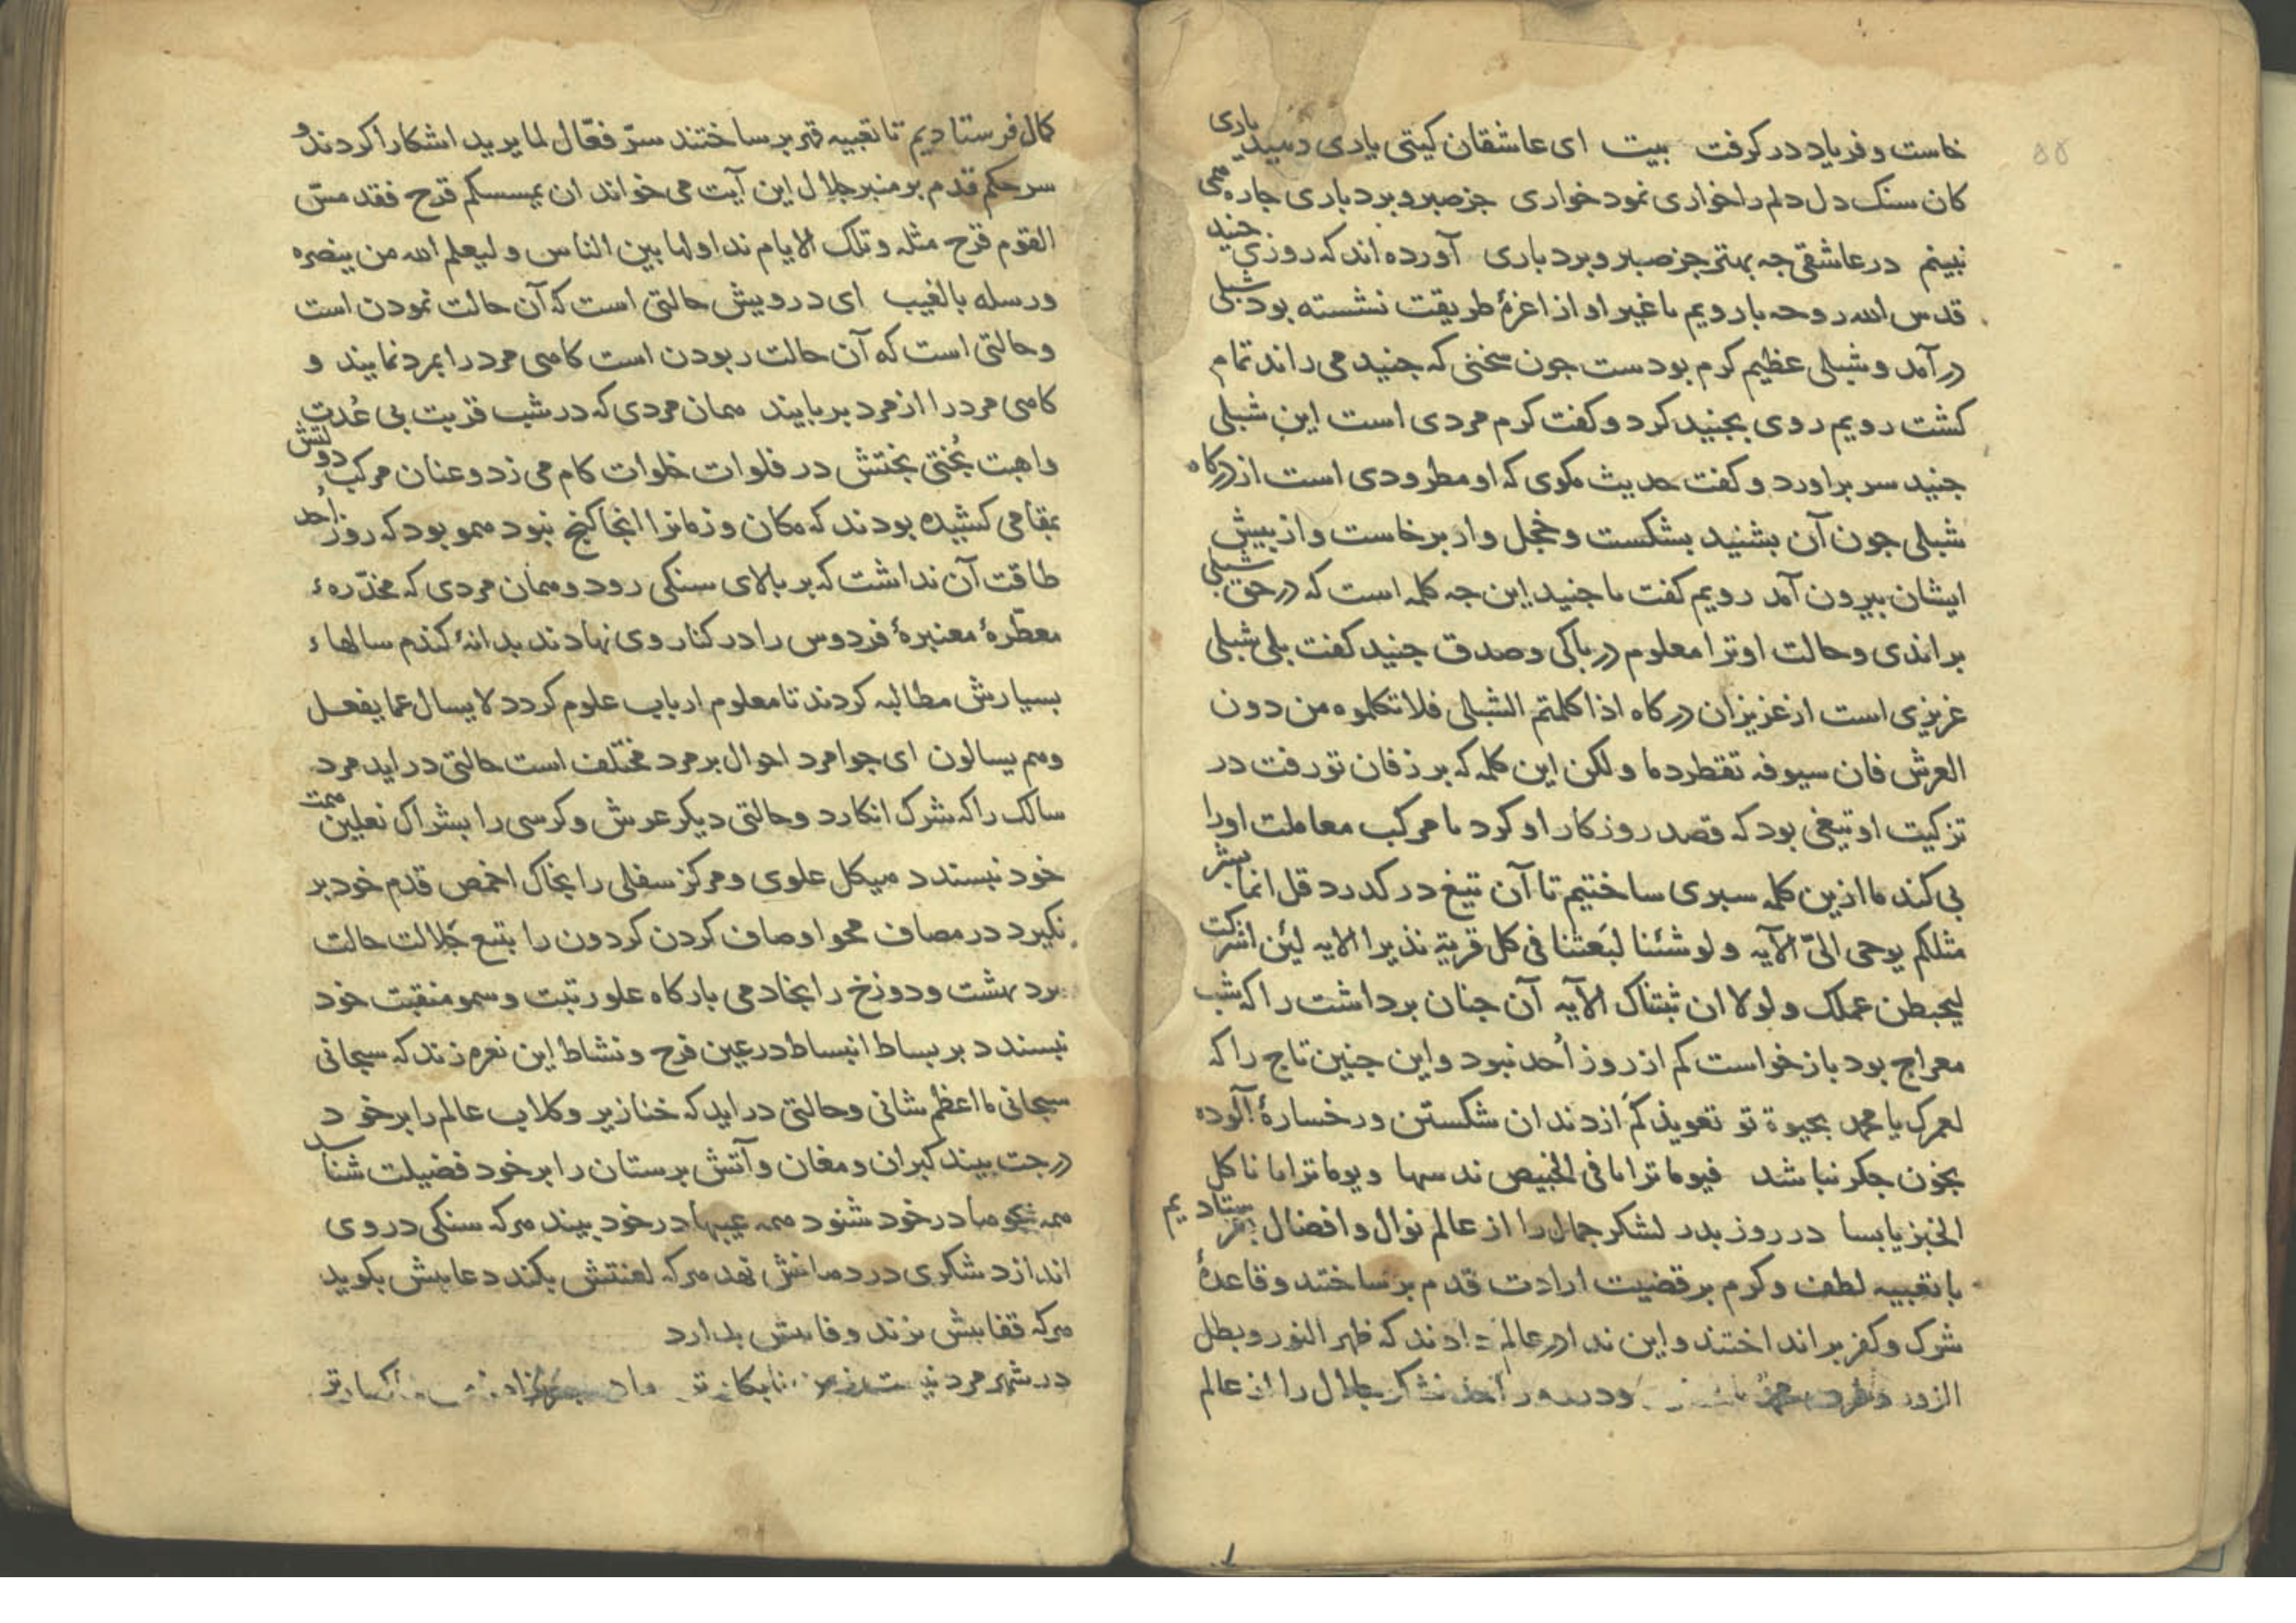 ۵۵
خاست و فریاد در کرفت بیت ای عاشقان کیتی یادی دهید یاری
کان سنک دل دلم را خواری نمود خواری جز صبر و بردباری جاره همی
نبینم در عاشقی جه بهتر جز صبر و بردباری آورده اند که روزی جنید
قدس الله روحه با رویم با غیر او از اعزهٔ طریقت نشسته بود شبلی
در آمد و شبلی عظیم کرم بودست جون سخنی که جنید می راند تمام
کشت رویم روی بجنید کرد و کفت کرم مردی است این شبلی
جنید سر براورد و کفت حدیث مکوی که او مطرودی است از درکاه
شبلی جون آن بشنید بشکست و خجل وار برخاست و از بیش
ایشان بیرون آمد رویم کفت یا جنید این جه کلمه است که در حق شبلی
براندی و حالت او ترا معلوم در باکی و صدق جنید کفت بلی شبلی
عزیزی است از عزیزان درکاه اذا کلمتم الشبلی فلا تکلموه من دون
العرش فان سیوفه تقطر دما ولکن این کلمه که بر زفان تو رفت در
تزکیت او تیغی بود که قصد روزکار او کرد تا مرکب معاملت او را
بی کند ما ازین کلمه سبری ساختیم تا آن تیغ در کدرد قل انما بشر
مثلکم یوحی الیّ الآیه و لو شئنا لبَعثنا فی کل قریة نذیرا الایه لئن اشرکت
لیحبطن عملک و لولا ان ثبتناک الآیه آن جنان برداشت را که شب
معراج بود باز خواست کم از روز اُحد نبود و این جنین تاج را که
لعمرک یا محمد بحیوة تو تعویذ کم از دندان شکستن و رخسارهٔ آلوده
بخون جکر نباشد فیوما ترانا فی الخبیص ندسها و یوما ترانا ناکل
الخبز یابسا در روز بدر لشکر جمال را از عالم نوال و افضال بفرستادیم
با تعبیه لطف و کرم بر قضیت ارادت قدم برساختند و قاعدهٔ
شرک و کفر برانداختند و این ندا در عالم دادند که ظهر النور و بطل
الزور و در روز اُحد لشکر جلال را از عالم
کمال فرستادیم تا تعبیه قهر برساختند سرّ فعّال لما یرید اشکارا کردند و
سر حکم قدم بر منبر جلال این آیت می خواند ان یمسسکم قرح فقد مسّ
القوم قرح مثله و تلک الایام نداولها بین الناس و لیعلم الله من ینصره
ورسله بالغیب ای درویش حالتی است که آن حالت نمودن است
و حالتی است که آن حالت ربودن است کاهی مرد را بمرد نمایند و
کاهی مرد را از مرد بربایند همان مردی که در شب قربت بی عُدت
و اهبت بُختی بختش در فلوات خلوات کام می زد و عنان مرکب دولتش
بمقامی کشیده بودند که مکان و زمانرا انجا کنج نبود همو بود که روز اُحد
طاقت آن نداشت که بر بالای سنکی رود و همان مردی که مخدّرهٔ
معطّرهٔ معنبرهٔ فردوس را در کنار وی نهادند بدانهٔ کندم سالهاء
بسیارش مطالبه کردند تا معلوم ارباب علوم کردد لا یسال عما یفعل
وهم یسالون ای جوامرد احوال بر مرد مختلف است حالتی دراید مرد
سالک را که شرک انکارد و حالتی دیکر عرش و کرسی را بشراک نعلین همت
خود نبسندد هیکل علوی و مرکز سفلی را بخاک اخمص قدم خود بر
نکیرد در مصاف محو اوصاف کردن کردون را بتیع جَلالت حالت
برد بهشت و دوزخ را بخادمی بارکاه علو رتبت و سمو منقبت خود
نبسندد بر بساط انبساط در عین فرح و نشاط این نعره زند که سبحانی
سبحانی ما اعظم شانی و حالتی دراید که خنازیر و کلاب عالم را بر خود
درجت بیند کبران و مغان و آتش برستان را بر خود فضیلت شناسد
همه هجوها در خود شنود همه عیبها در خود بیند هرکه سنکی در وی
اندازد شکری در دهانش نهد هرکه لعنتش بکند دعایش بکوید
هرکه قفایش بزند وفایش بدارد
در شهر مرد نیست ز من نابکارتر مادر